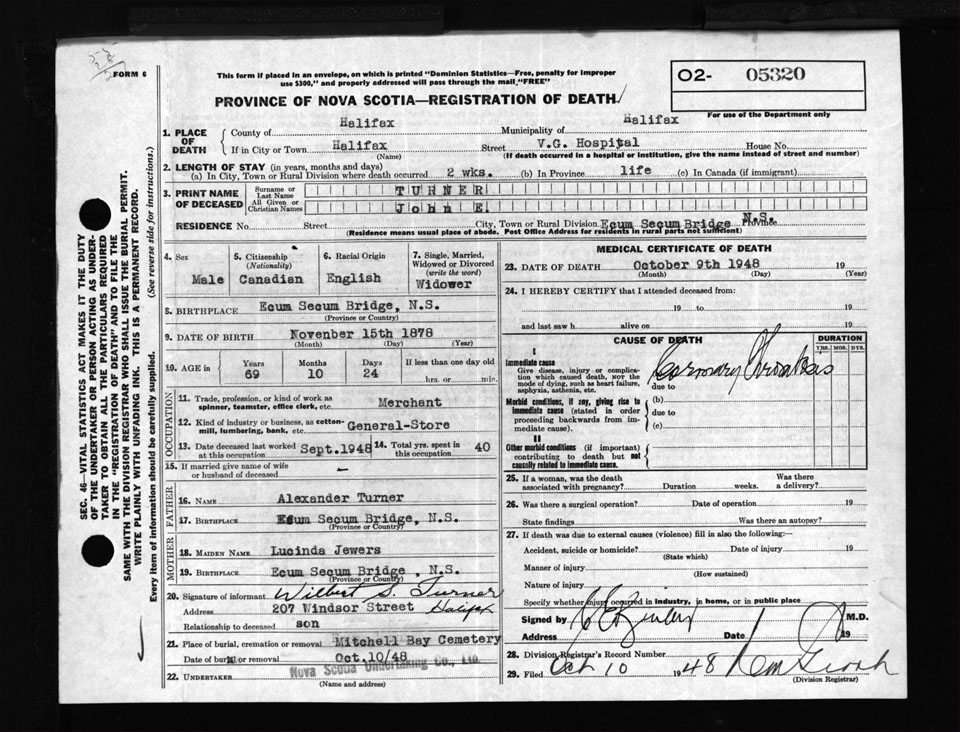 FORM 6
This form if placed in an envelope, on which is printed "Dominion Statistics—Free, penalty for improper
use $300," and properly addressed will pass through the mail "FREE"
O2- 05320
For use of the Department only
PROVINCE OF NOVA SCOTIA—REGISTRATION OF DEATH
SEC. 46—VITAL STATISTICS ACT MAKES IT THE DUTY
OF THE UNDERTAKER OR PERSON ACTING AS UNDER-
TAKER TO OBTAIN ALL THE PARTICULARS REQUIRED
IN THE "REGISTRATION OF DEATH" AND TO FILE THE
SAME WITH THE DIVISION REGISTRAR WHO SHALL ISSUE THE BURIAL PERMIT.
WRITE PLAINLY WITH UNFADING INK. THIS IS A PERMANENT RECORD.
Every item of information should be carefully supplied. (See reverse side for instructions.)
1. PLACE OF DEATH
County of Halifax Municipality of Halifax
If in City or Town Halifax Street V.G. Hospital House No.
(Name) (If death occurred in a hospital or institution, give the name instead of street and number)
2. LENGTH OF STAY (in years, months and days)
(a) In City, Town or Rural Division where death occurred 2 wks. (b) In Province life (c) In Canada (if immigrant)
3. PRINT NAME OF DECEASED
Surname or Last Name TURNER
All Given or Christian Names John E.
RESIDENCE No. Street City, Town or Rural Division Ecum Secum Bridge N.S. Province
(Residence means usual place of abode. Post Office Address for residents in rural parts not sufficient)
4. Sex Male
5. Citizenship (Nationality) Canadian
6. Racial Origin English
7. Single, Married, Widowed or Divorced (write the word) Widower
8. BIRTHPLACE Ecum Secum Bridge, N.S.
(Province or Country)
9. DATE OF BIRTH November 15th 1878
(Month) (Day) (Year)
10. AGE in Years 69 Months 10 Days 24 If less than one day old hrs. or min.
OCCUPATION
11. Trade, profession, or kind of work as spinner, teamster, office clerk, etc. Merchant
12. Kind of industry or business, as cotton-mill, lumbering, bank, etc. General-Store
13. Date deceased last worked at this occupation Sept.1948
14. Total yrs. spent in this occupation 40
15. If married give name of wife or husband of deceased -
FATHER
16. NAME Alexander Turner
17. BIRTHPLACE Ecum Secum Bridge, N.S.
(Province or Country)
MOTHER
18. MAIDEN NAME Lucinda Jewers
19. BIRTHPLACE Ecum Secum Bridge , N.S.
(Province or Country)
20. Signature of informant Wilbert S. Turner
Address 207 Windsor Street Halifax
Relationship to deceased son
21. Place of burial, cremation or removal Mitchell Bay Cemetery
Date of burial or removal Oct.10/48
22. UNDERTAKER Nova Scotia Undertaking Co., Ltd.
(Name and address)
MEDICAL CERTIFICATE OF DEATH
23. DATE OF DEATH October 9th 1948 19
(Month) (Day) (Year)
24. I HEREBY CERTIFY that I attended deceased from:
19 to 19
and last saw h alive on 19
CAUSE OF DEATH
DURATION
YRS. MOS. DYS.
I
Immediate cause
Give disease, injury or complication which caused death, NOT the mode of dying, such as heart failure, asphyxia, asthenia, etc.
Coronary Thrombosis
due to
Morbid conditions, if any, giving rise to immediate cause (stated in order proceeding backwards from immediate cause).
(b)
due to
(c)
II
Other morbid conditions (if important) contributing to death but not causally related to immediate cause.
25. If a woman, was the death associated with pregnancy? Duration weeks. Was there a delivery?
26. Was there a surgical operation? Date of operation 19
State findings Was there an autopsy?
27. If death was due to external causes (violence) fill in also the following:—
Accident, suicide or homicide? Date of injury 19
(State which)
Manner of injury
(How sustained)
Nature of injury
Specify whether injury occurred in industry, in home, or in public place
Signed by M.D.
Address Date 19
28. Division Registrar's Record Number
29. Filed Oct 10 1948
(Division Registrar)